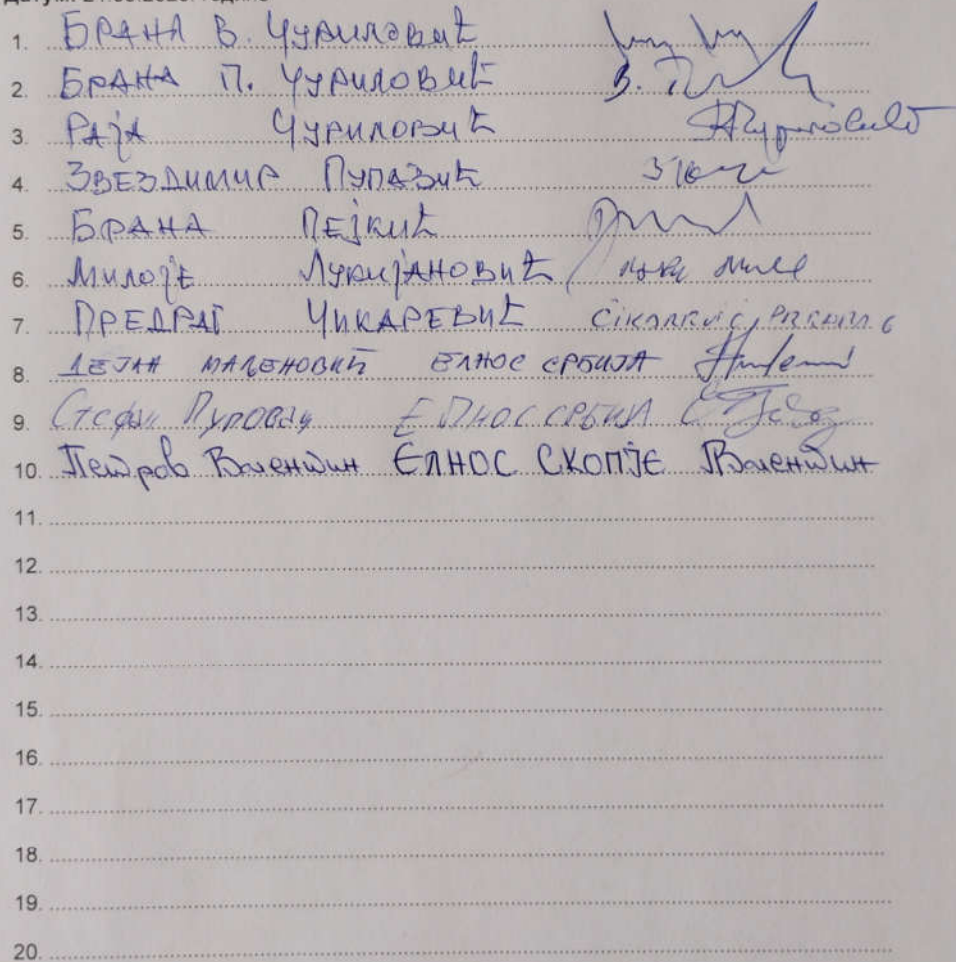 1. БРАНА В. ЧУРИЛОВИЋ
2. БРАНА П. ЧУРИЛОВИЋ
3. РАЈА ЧУРИЛОВИЋ
4. ЗВЕЗДИМИР ПУПАВИЋ
5. БРАНА ПЕЈКИЋ
6. МИЛОЈЕ ЛУКИЈАНОВИЋ
7. ПРЕДРАГ ЧИКАРЕВИЋ
8. ДЕЈАН МАЛЕНОВИЋ ЕЛНОС СРБИЈА
9. Стефан ЕЛНОС СРБИЈА
10. Петров Валентин ЕЛНОС СКОПЈЕ Валентин
11.
12.
13.
14.
15.
16.
17.
18.
19.
20.